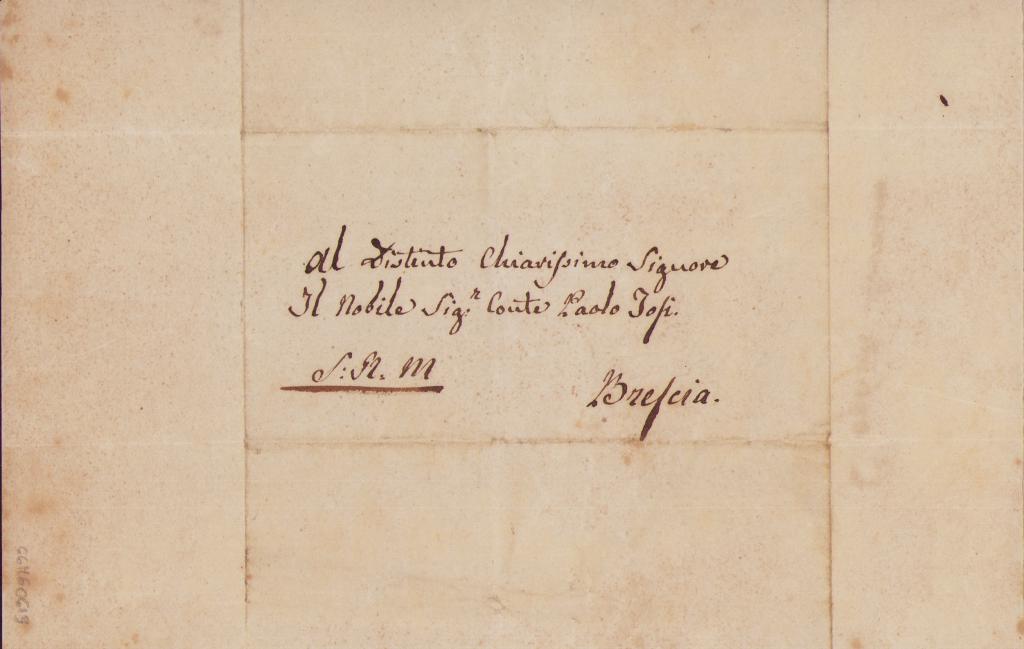 Al Distinto Chiarissimo Signore
Il Nobile Sig.r Conte Paolo Tosi.
S: R. M
Brescia.